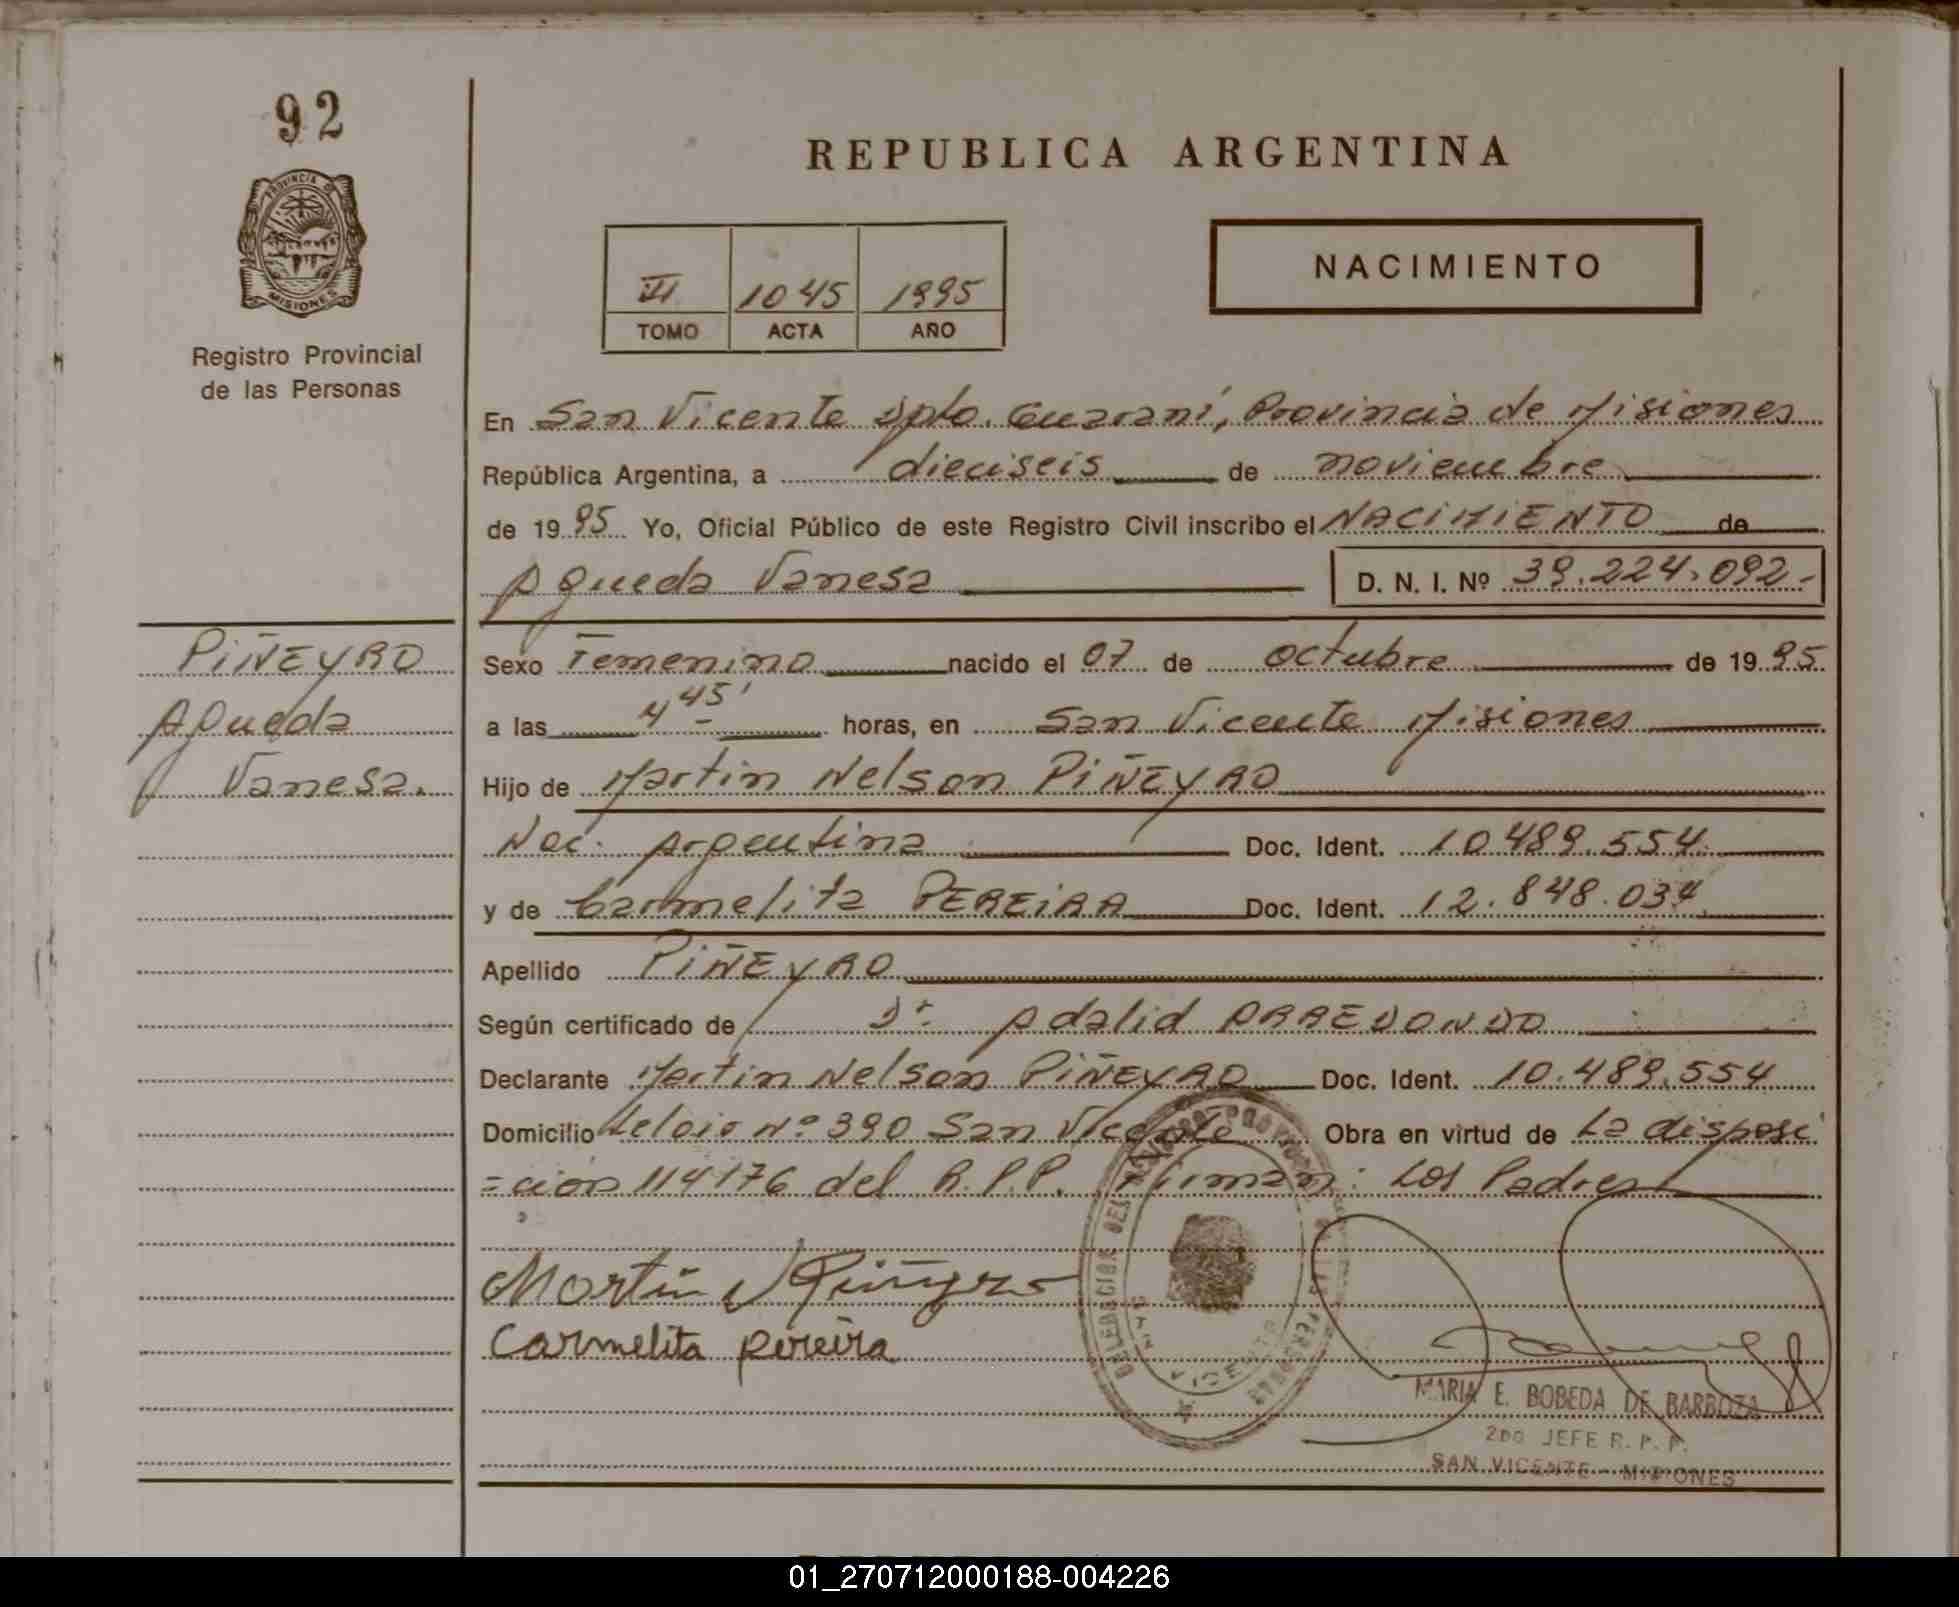 92
PROVINCIA DE
MISIONES
Registro Provincial
de las Personas
REPUBLICA ARGENTINA
NACIMIENTO
VI 1045 1995
TOMO ACTA AÑO
En San Vicente Dpto. Guaraní, Provincia de Misiones
República Argentina, a dieciseis de noviembre
de 1995 Yo, Oficial Público de este Registro Civil inscribo el NACIMIENTO de
Agueda Vanesa D. N. I. Nº 39.224.092.-
PIÑEYRO
Agueda
Vanesa.
Sexo Femenino nacido el 07 de octubre de 1995
a las 4 45' horas, en San Vicente Misiones
Hijo de Martin Nelson PIÑEYRO
Nac. Argentina Doc. Ident. 10.489.554
y de Carmelita PEREIRA Doc. Ident. 12.848.034
Apellido PIÑEYRO
Según certificado de Dr. Adalid ARREDONDO
Declarante Martin Nelson PIÑEYRO Doc. Ident. 10.489.554
Domicilio Nº 390 San Vicente Obra en virtud de La disposi
=ción 114176 del R.P.P. Firman: Los Padres
Martin N Piñeyro
Carmelita pereira
DELEGACION DEL REGISTRO PROVINCIAL DE LAS PERSONAS
SAN VICENTE
MARIA E. BOBEDA DE BARBOZA
2DO JEFE R. P. P.
SAN VICENTE - MISIONES
01_270712000188-004226